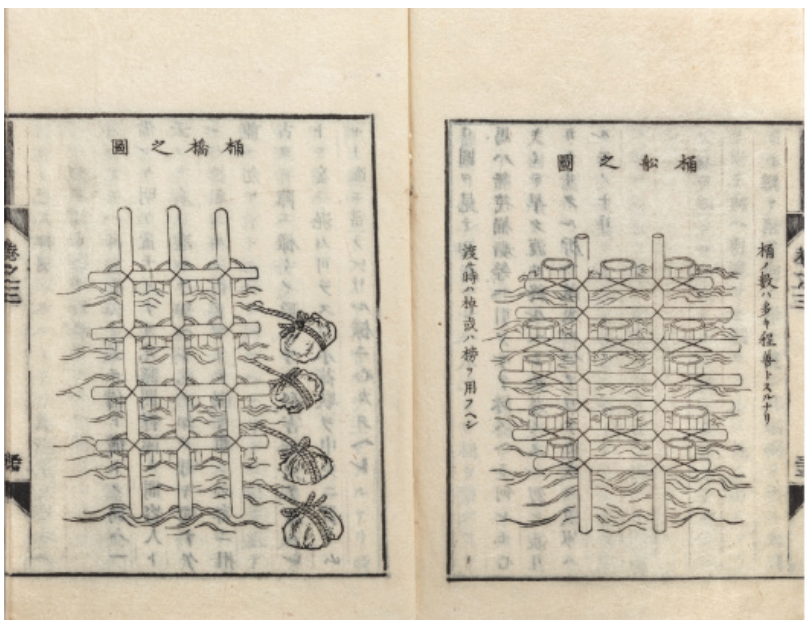 桶舩之圖
桶ノ數ハ多キ程善トスルナリ
渡ル時ハ棹或ハ榜ヲ用フヘシ
桶橋之圖
卷之三